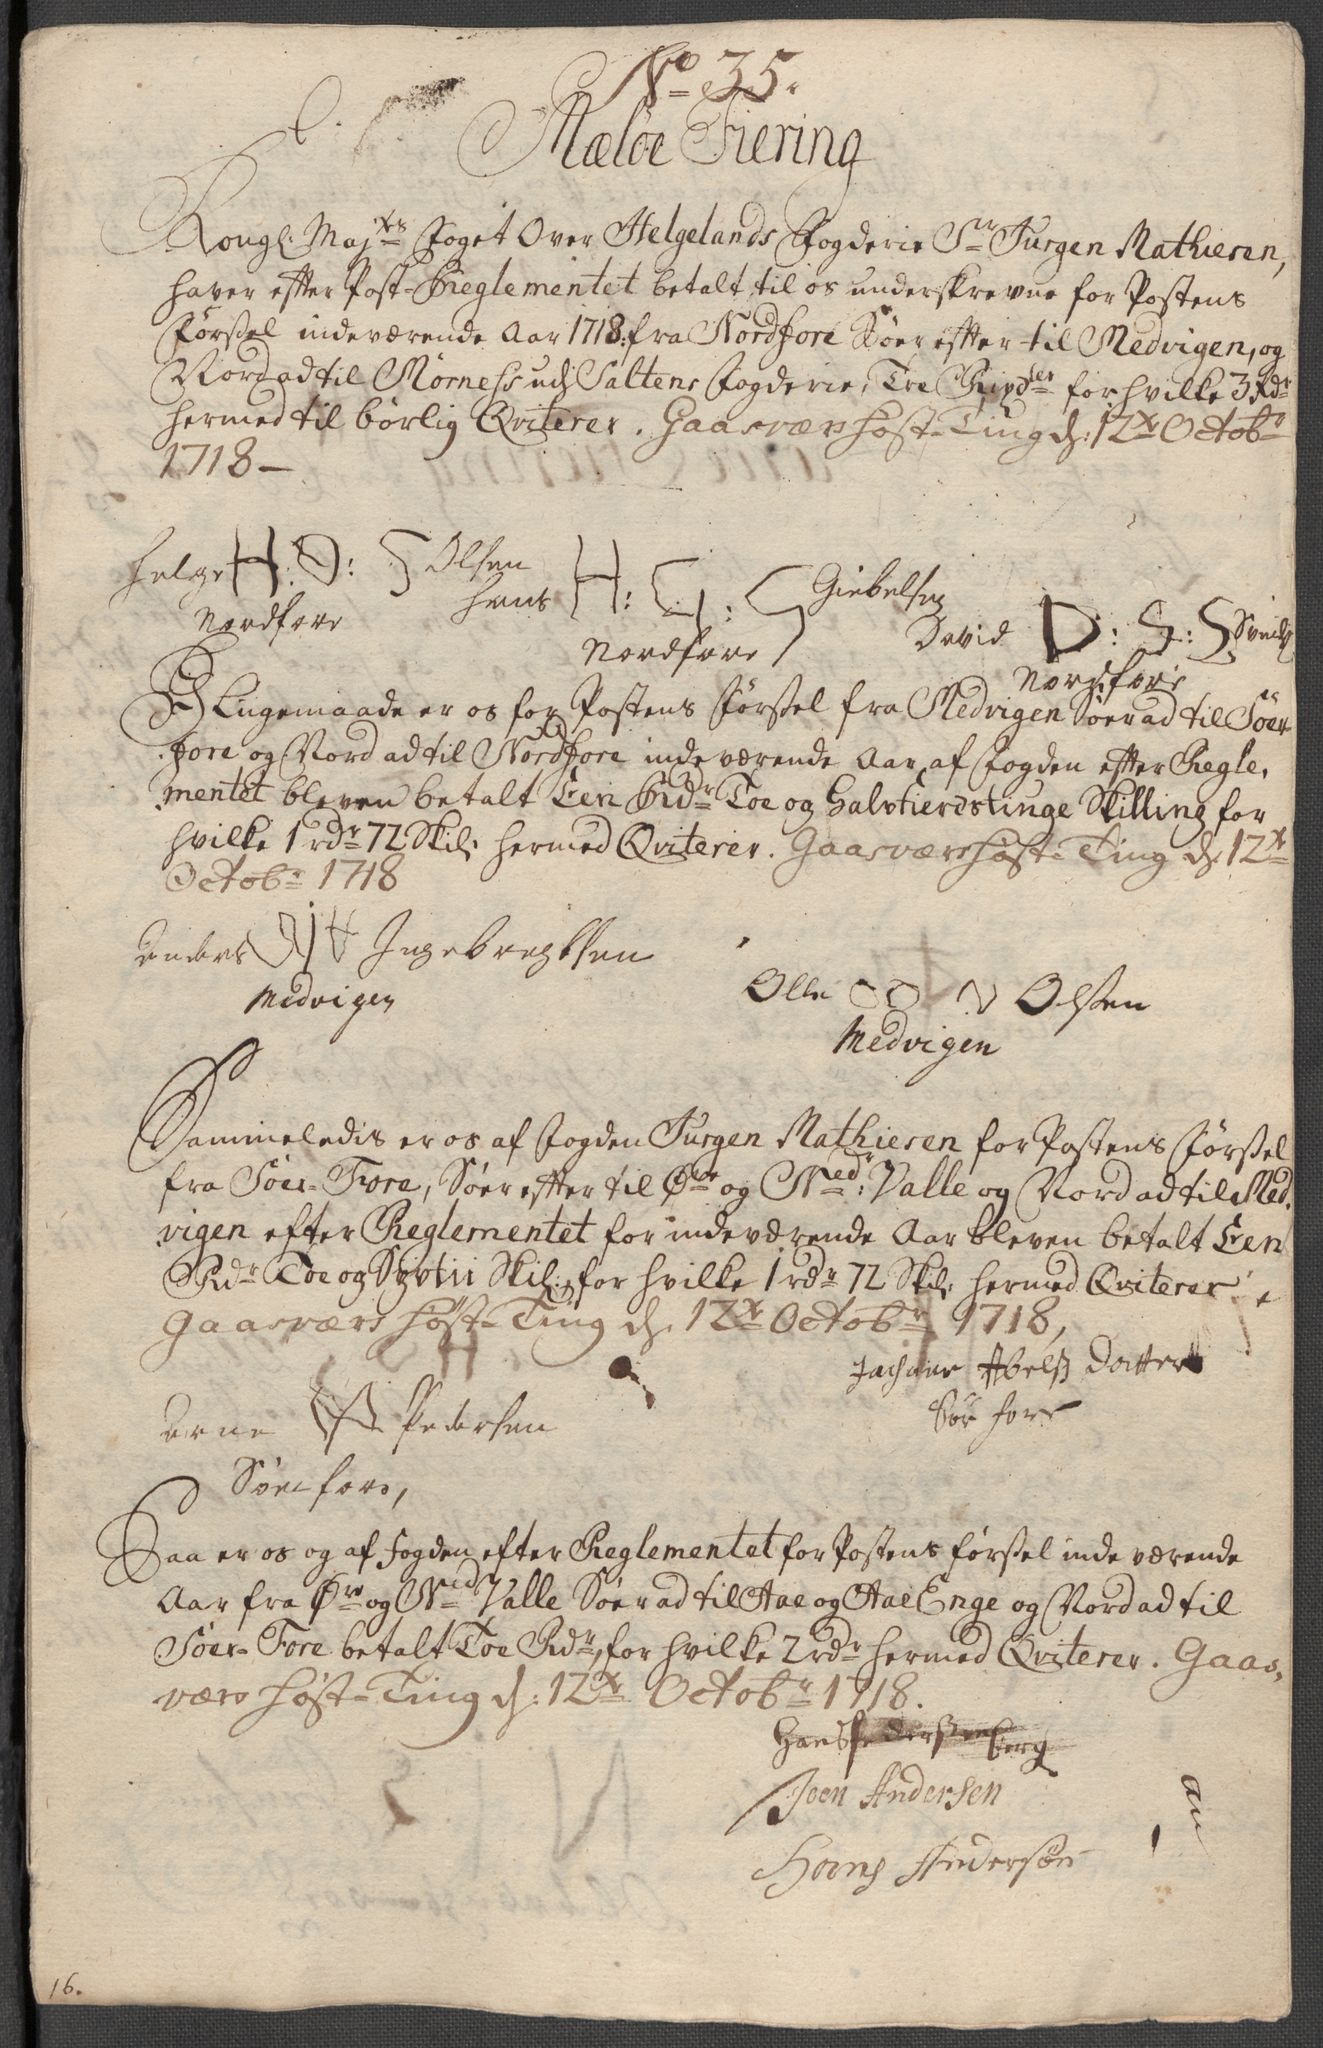 No 35.
Mæløe Fiering
Kongl: Majts Foget Over Helgelands Fogderie Sr Jurgen Mathiesen,
haver efter Post-Reglementet betalt til os underskrevne for Postens
Førßel indeværende Aar 1718: fra Nordfore Søer efter til Medvigen, og
Nord ad til Mørness udj Saltens Fogderie, Tre Rixdler for hvilke 3 Rdr
hermed til børlig Qviterer. Gaasværs Høst-Ting d: 12te Octobr
1718 -
Helge H: O: S Olsen
Nordfore
Hans H: G: S Giebelsen
Nordfore
David D: S: S
Nordfore
J Ligemaade er os for Postens Førßel fra Medvigen Søer ad til Søer
fore og Nord ad til Nordfore indeværende Aar af Fogden efter Regle,
mentet bleven betalt Een Rdr Toe og halvfierestinge Skilling for
hvilke 1 rdr 72 Skil: hermed Qviterer. Gaasværs Høst-Ting d: 12te
Octobr 1718
Anders Ingebregtsen
Medvigen
Olle Olßen
Medvigen
Sammeledis er os af Fogden Jurgen Mathiesen for Postens Førßel
fra Søer-Fore, Søer efter til Øre og Nedr: Valle og Nord ad til Med,
vigen efter Reglementet for indeværende Aar bleven betalt Een
Rdr Toe og Syvtii Skil: for hvilke 1 rdr 72 Skil: hermed Qviterer
Gaasværs Høst-Ting d: 12te Octobr 1718,
Abelß Datter
Sør fore
Arne Pedersen
Søer fore,
Saa er os og af Fogden efter Reglementet for Postens førßel inde værende
Aar fra Øre og Ned Valle Søer ad til Aae og Aae Enge og Nord ad til
Søer-Fore betalt Toe Rdr, for hvilke 2 rdr hermed Qviterer. Gaas,
værs Høst-Ting d: 12te Octobr 1718.
Hans Pederßen berg
Joen Andersen
Hans Andersøn
an
16.